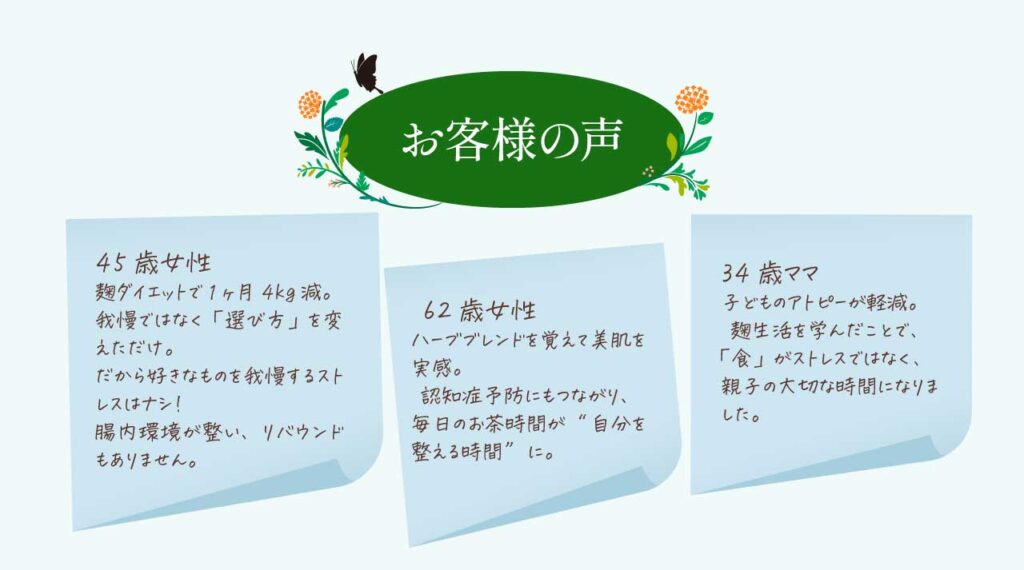 お客様の声
45歳女性
麹ダイエットで1ヶ月4kg減。
我慢ではなく「選び方」を変
えただけ。
だから好きなものを我慢するスト
レスはナシ!
腸内環境が整い、リバウンド
もありません。
62歳女性
ハーブブレンドを覚えて美肌を
実感。
認知症予防にもつながり、
毎日のお茶時間が“自分を
整える時間”に。
34歳ママ
子どものアトピーが軽減。
麹生活を学んだことで、
「食」がストレスではなく、
親子の大切な時間になりま
した。